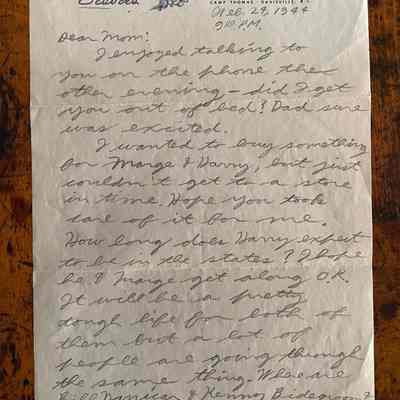 CAMP THOMAS, DAVISVILLE, R. I.
Feb. 29, 1944
9 P.M.
Dear Mom:
I enjoyed talking to
you on the phone the
other evening – did I get
you out of bed? Dad sure
was excited.
I wanted to buy something
for Marge & Harry, but just
couldn't get to a store
in time. Hope you took
care of it for me.
How long does Harry expect
to be in the states? I hope
he & Marge get along OK.
It will be a pretty
tough life for both of
them but a lot of
people are going through
the same thing. Where are
Bill & Kenny Bridegroom?